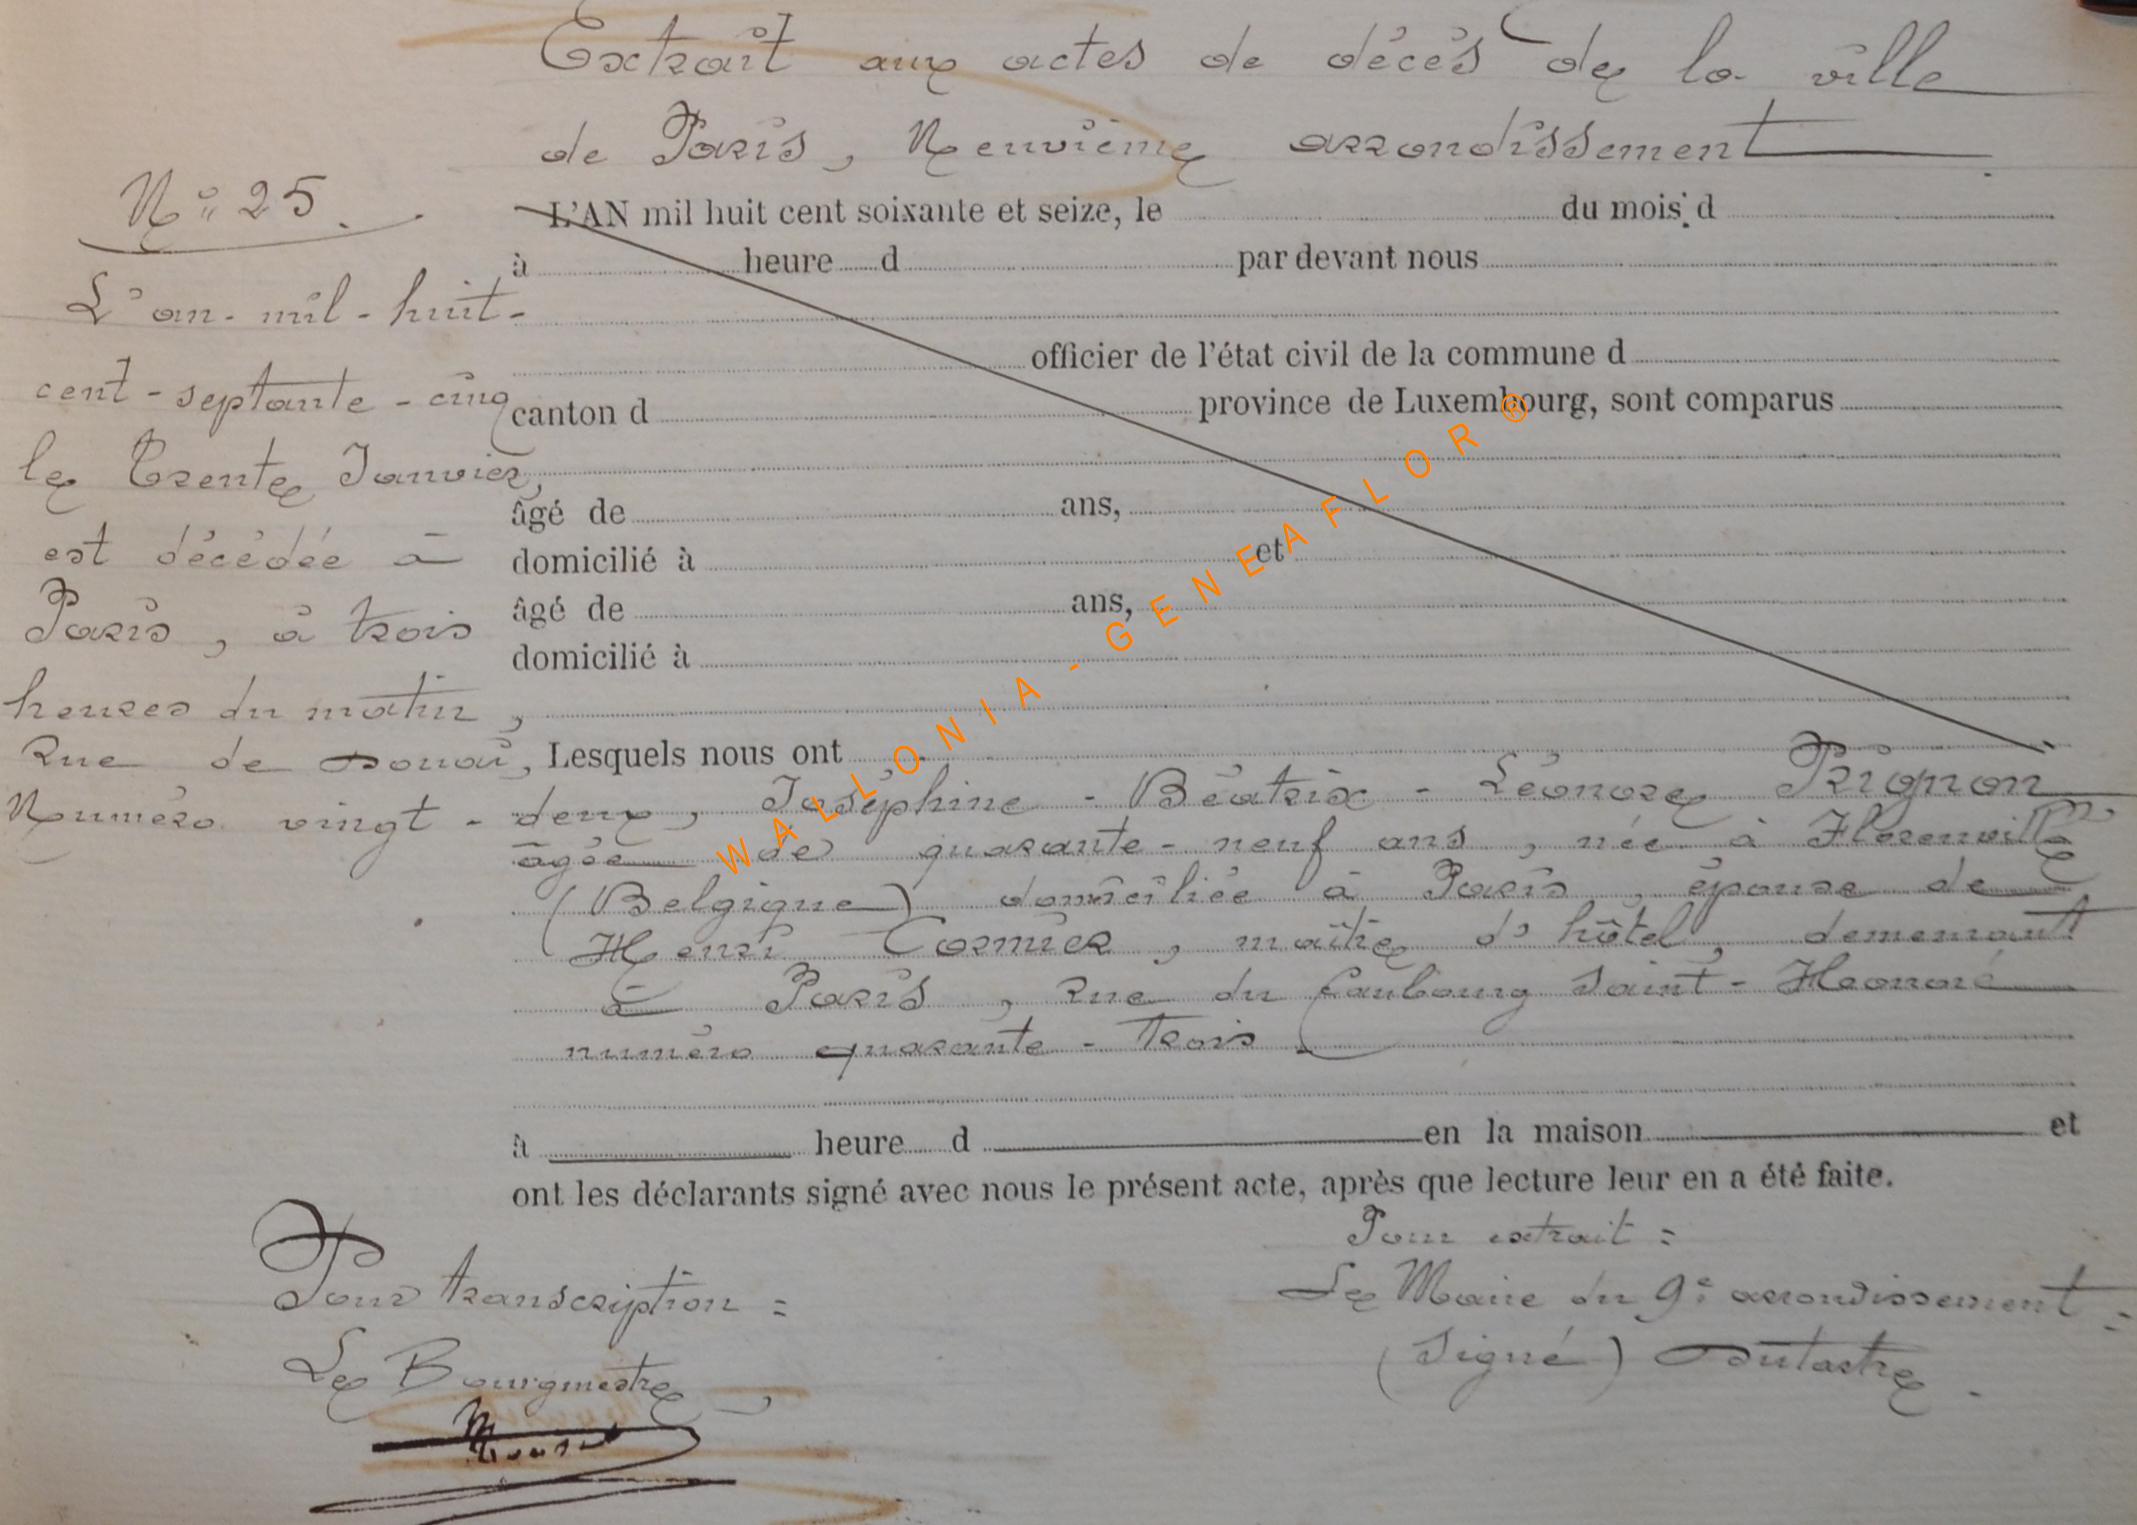 Extrait aux actes de décès de la ville
de Paris, Neuvième arrondissement
N° 25.
L'AN mil huit cent soixante et seize, le du mois d
à heure d par devant nous
officier de l'état civil de la commune d
canton d province de Luxembourg, sont comparus
âgé de ans,
domicilié à et
âgé de ans,
domicilié à
L'an-mil-huit-
cent-septante-cinq
le Trente Janvier,
est décédée à
Paris, à trois
heures du matin,
Rue de Douai,
Lesquels nous ont
Numéro vingt-deux, Joséphine-Béatrix-Léonore Prignon
âgée de quarante-neuf ans, née à Florenville
(Belgique) domiciliée à Paris, épouse de
Henri Cormier, maître d'hôtel, demeurant
à Paris, Rue du faubourg Saint-Honoré
numéro quarante-trois
à heure d en la maison et
ont les déclarants signé avec nous le présent acte, après que lecture leur en a été faite.
Pour extrait =
Le Maire du 9e arrondissement =
(Signé) Dutastre.
Pour transcription =
Le Bourgmestre,
WALLONIA-GENEAFLOR®